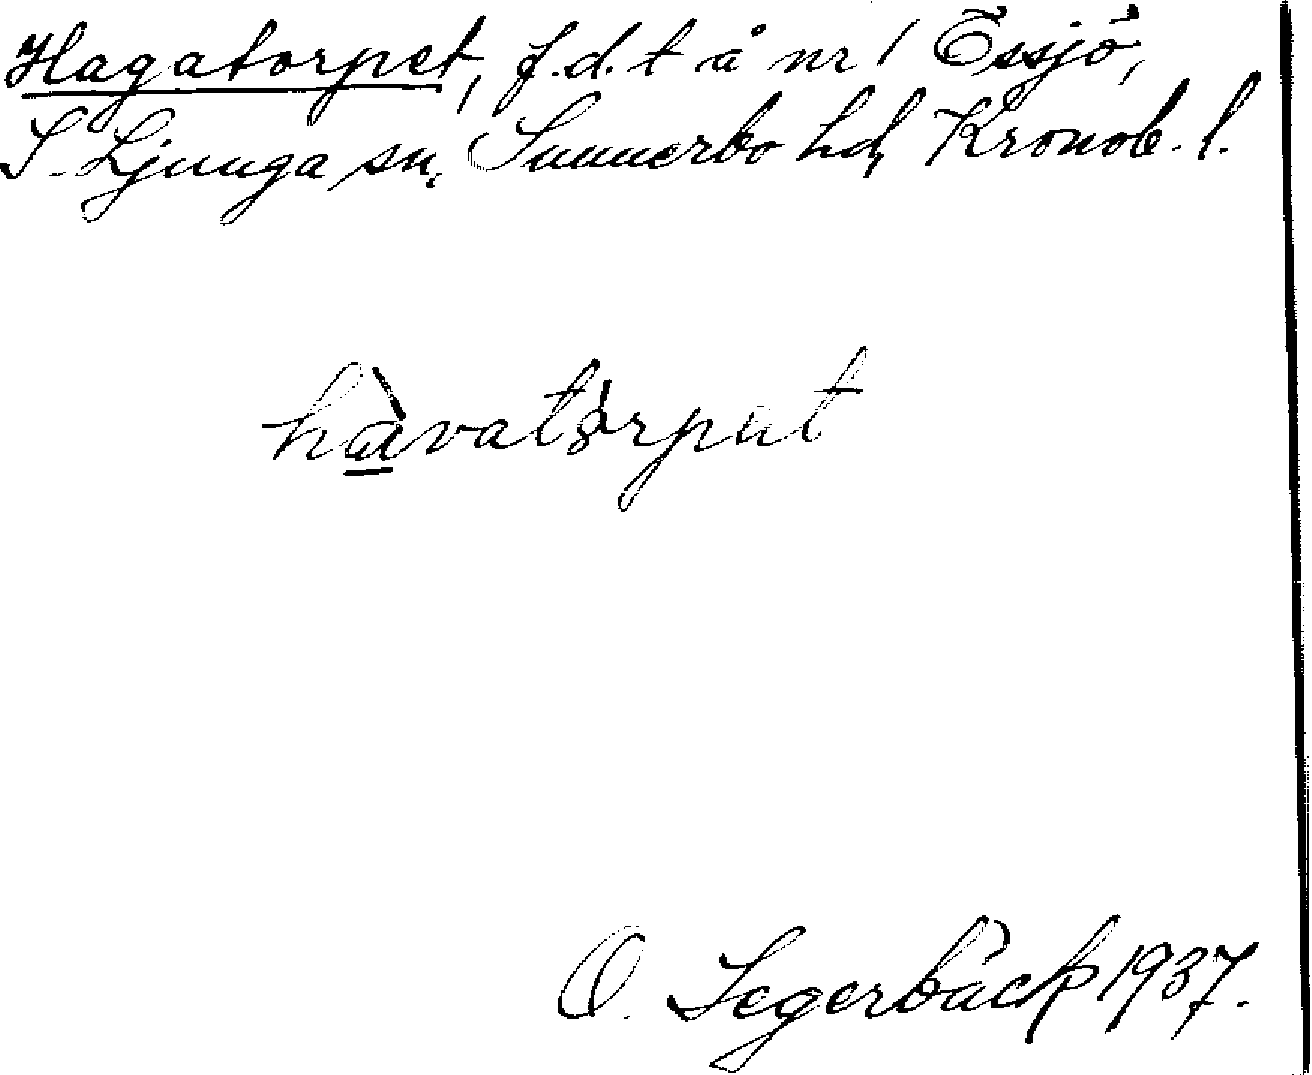 Hagatorpet, f.d. t å nr 1 Össjö,
S. Ljunga sn, Sunnerbo hd, Kronob. l.
hàvatórpat
O. Segerbäck 1937.